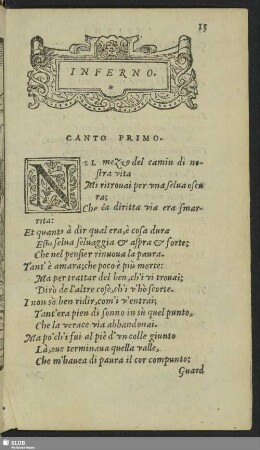 15
INFERNO.
CANTO PRIMO.
NEL mezzo del camin di no-
stra vita
Mi ritrouai per vna selua oscu
ra;
Che la diritta via era smar-
rita:
Et quanto à dir qual era, è cosa dura
Esta selua seluaggia & aspra & forte;
Che nel pensier rinuoua la paura.
Tant'è amara; che poco è più morte:
Ma per trattar del ben, ch'i vi trouai;
Dirò de l'altre cose, ch'i v'hò scorte.
I non sò ben ridir, com'i v'entrai;
Tant'era pien di sonno in sù quel punto,
Che la verace via abbandonai.
Ma po ch'i fui al piè d'vn colle giunto
Là, oue terminaua quella valle,
Che m'hauea di paura il cor compunto;
Guard
SLUB